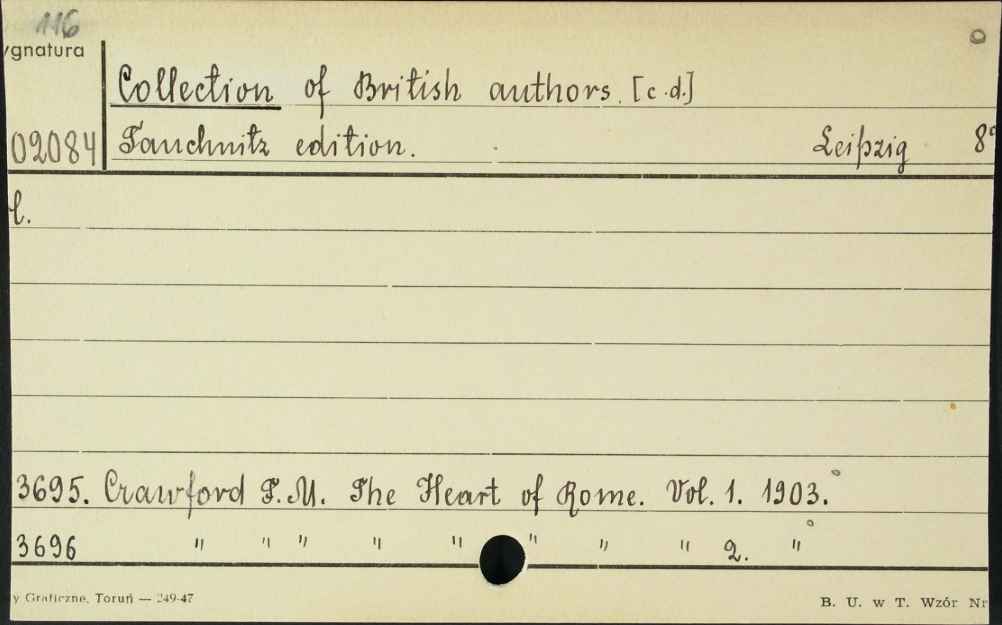 116
ygnatura
Collection of British authors. [c.d.]
02084 Tauchnitz edition. Leipzig 8°
t.
3695. Crawford F. M. The Heart of Rome. Vol. 1. 1903.°
3696 " " " " " " " " 2. " °
y Graficzne, Toruń — 249-47
B. U. w T. Wzór Nr